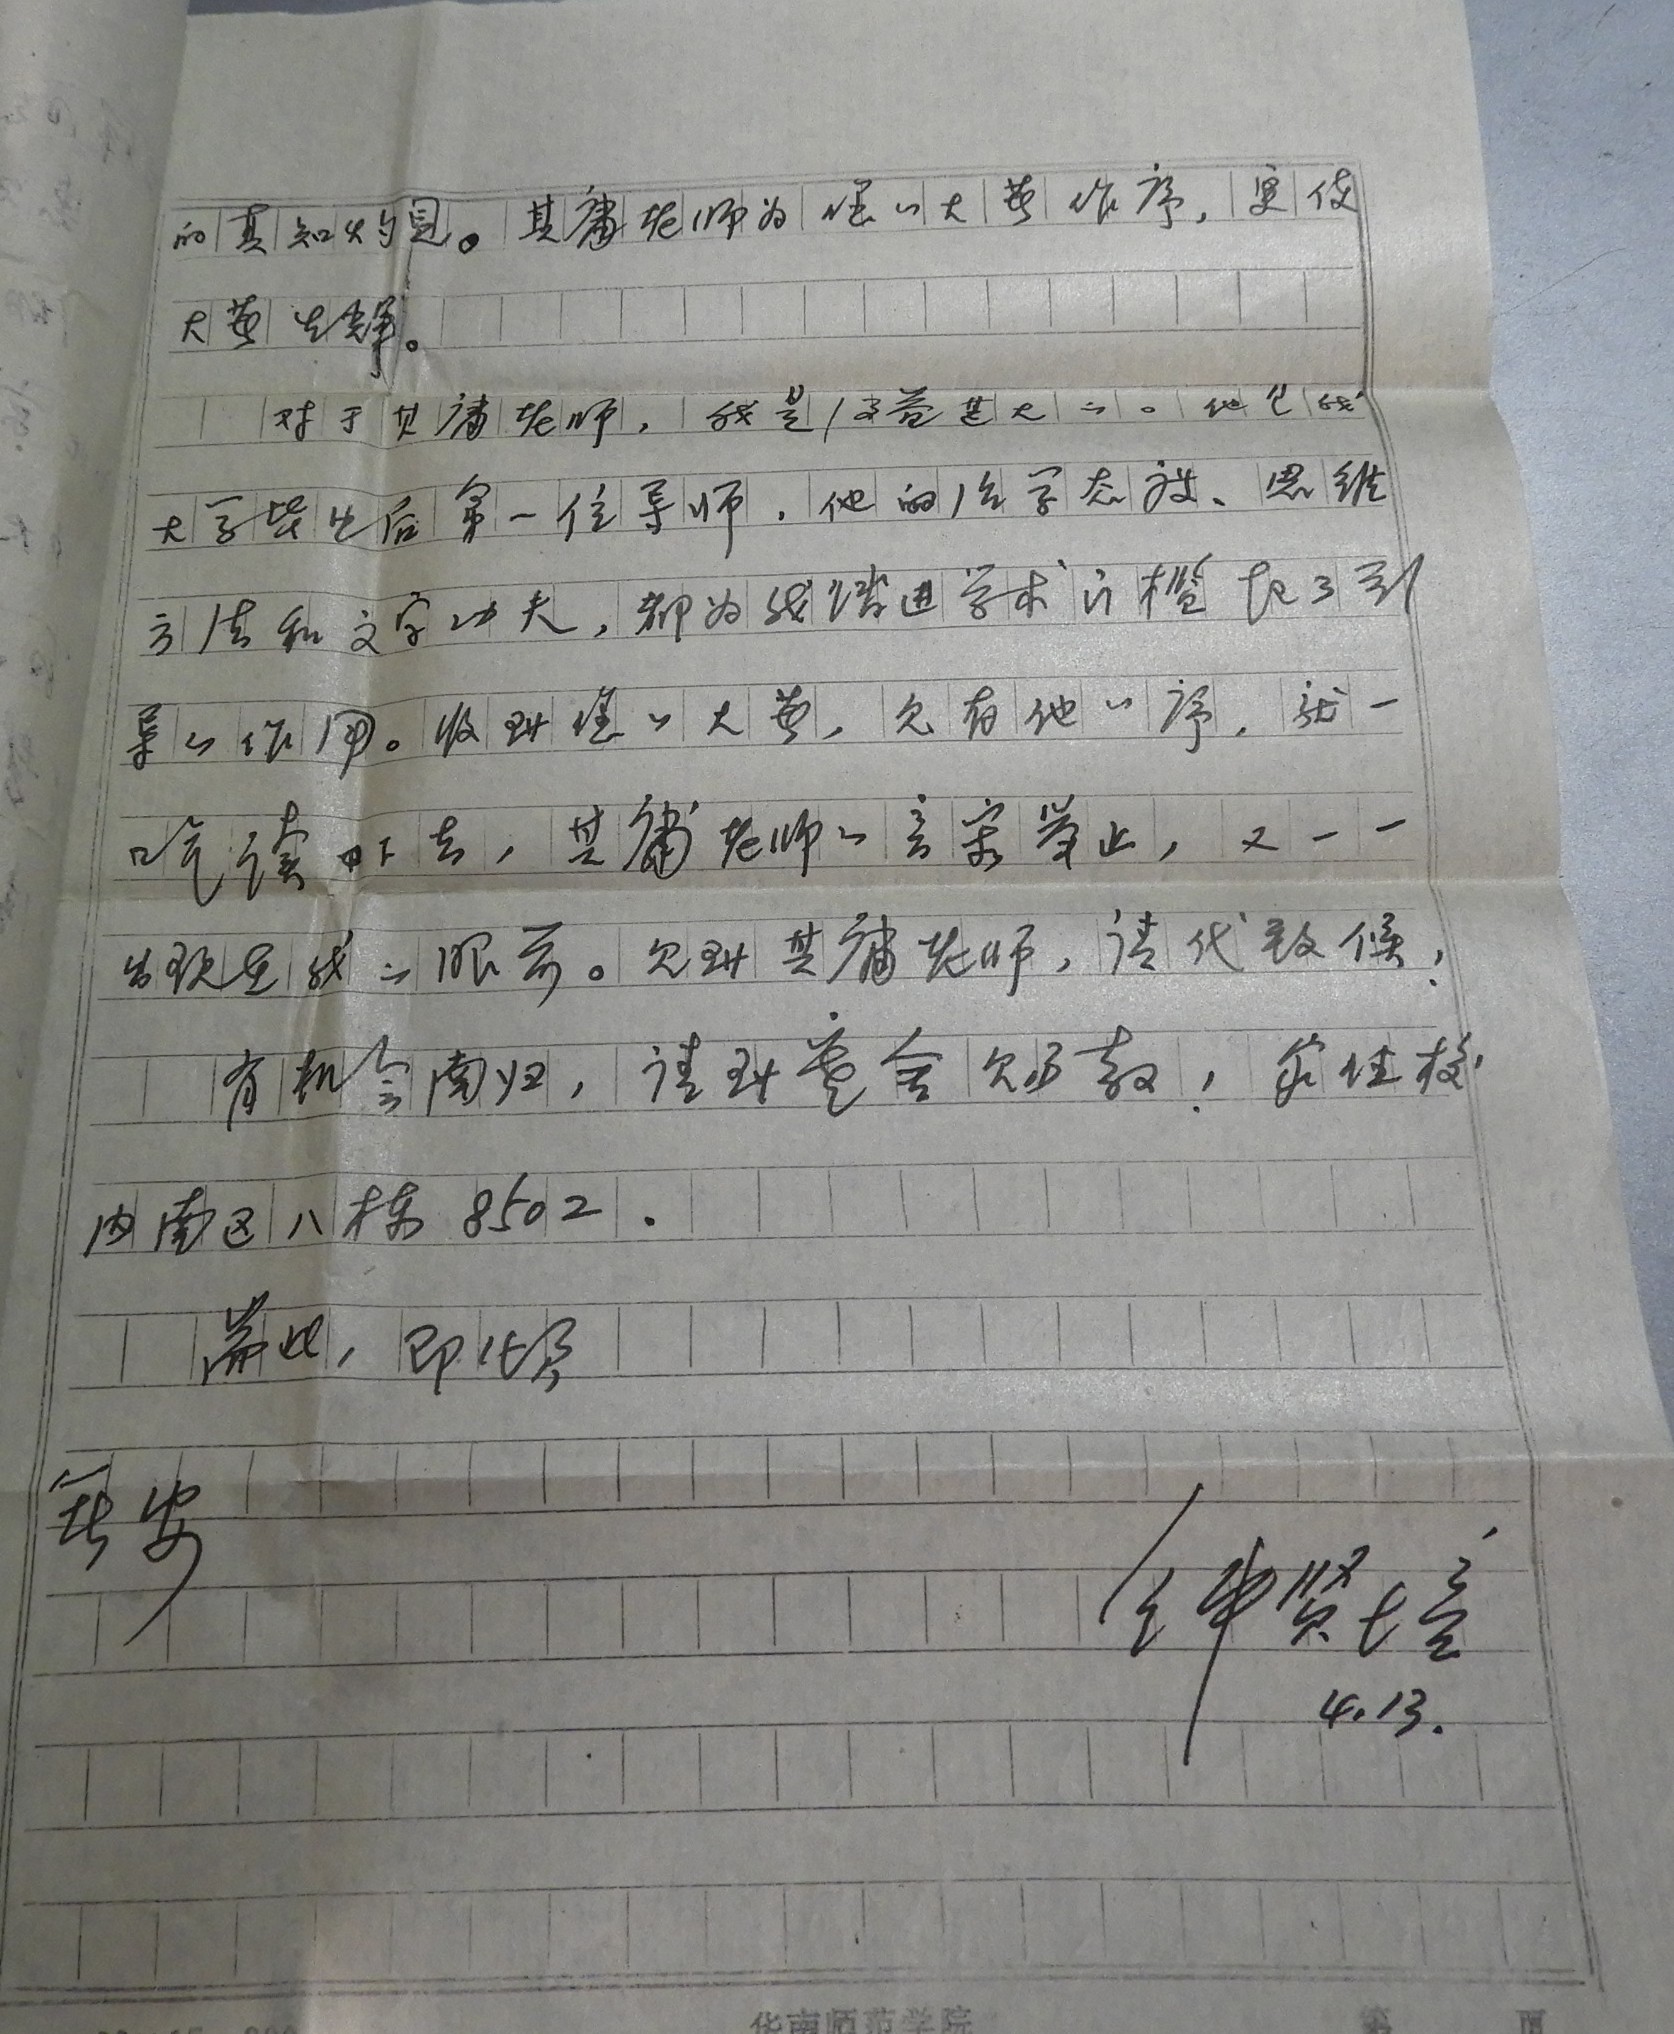 的真知灼见。其庸老师为您的大著作序，更使
大著生辉。
对于其庸老师，我是得益甚大的。他是我
大学毕业后第一位导师，他的治学态度、思维
方法和文字功夫，都为我跨进学术门槛起了引
导的作用。收到您的大著，见有他的序，就一
口气读下去，其庸老师的言容举止，又一一
出现在我的眼前。见到其庸老师，请代致候！
有机会南归，请到舍见教！家住校
内南区八栋8502．
耑此，即颂
安
钟贤培
4.13.
华南师范学院
第 页